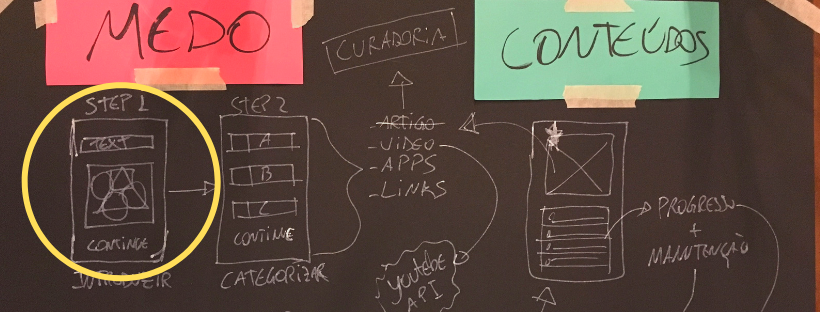 MEDO
CONTEÚDOS
CURADORIA
STEP 1
TEXT
CONTINUE
INTRODUZIR
STEP 2
A
B
C
CONTINUE
CATEGORIZAR
-ARTIGO
-VIDEO
-APPS
-LINKS
YOUTUBE
API
PROGRESSO
+
MANUTENÇÃO